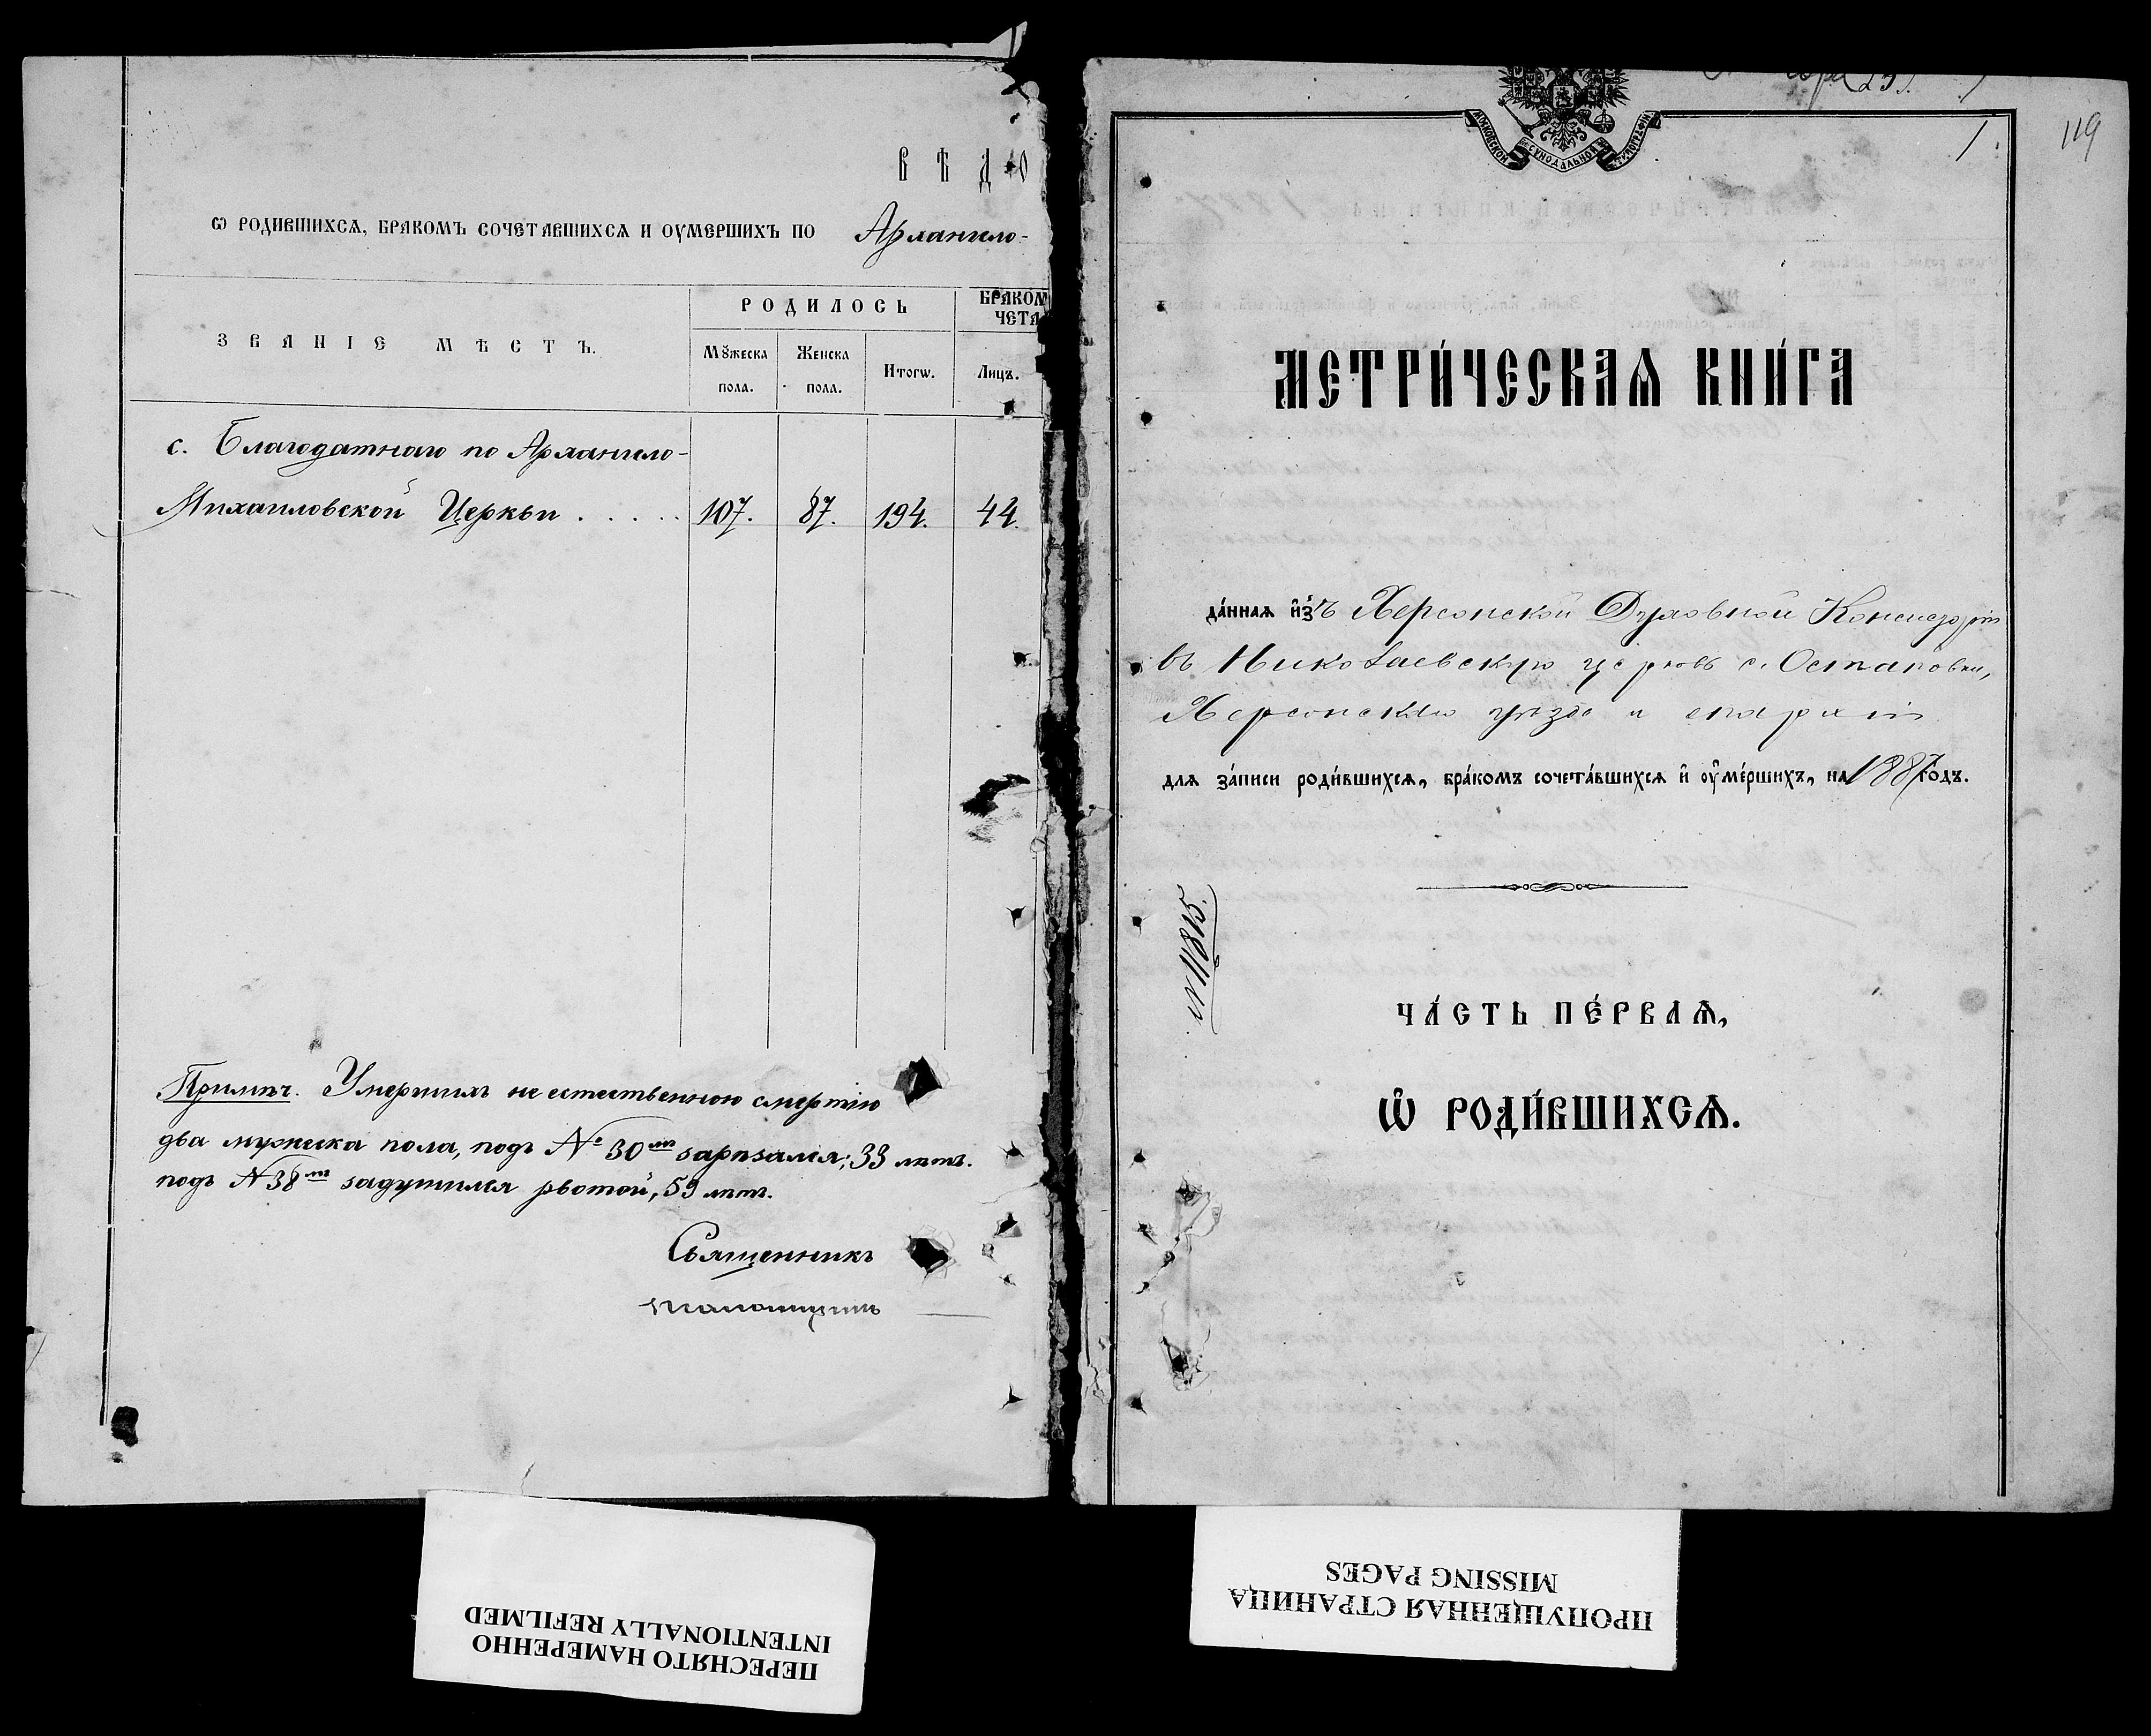 ВѢДО
Ѡ РОДИВШИХСЯ, БРАКОМЪ СОЧЕТАВШИХСЯ И ОУМЕРШИХЪ ПО Архангело-
ЗВАНІЕ МѢСТЪ.
РОДИЛОСЬ
БРАКОМ
ЧЕТА
Мꙋжеска пола.
Женска пола.
Итогѡ.
Лицъ.
с. Благодатнаго по Архангело-
Михаиловской Церкви . . . . . 107. 87. 194. 44.
Примѣч. Умершихъ не естественною смертію
два мужеска пола, подъ № 30мъ зарѣзался; 33 лѣтъ.
подъ № 38мъ задушился рвотой, 59 лѣтъ.
Священникъ
119
1.
МОСКОВСКОЙ СѴНОДАЛЬНОЙ ТИПОГРАФІИ
МЕТРИ́ЧЕСКАѦ КНИ́ГА
да́нная и҆зъ Херсонской Духовной Консисторіи
въ Николаевскую церковь с. Остаповки,
Херсонскаго уѣзда и епархіи
для за́писи роди́вшихся, бра́комъ сочета́вшихся и҆ оу҆ме́ршихъ, на 1887 годъ.
№ 11815.
ЧА́СТЬ ПЕ́РВАѦ,
Ѽ РОДИ́ВШИХСѦ.
ПЕРЕСНЯТО НАМЕРЕННО
INTENTIONALLY REFILMED
ПРОПУЩЕННАЯ СТРАНИЦА
MISSING PAGES